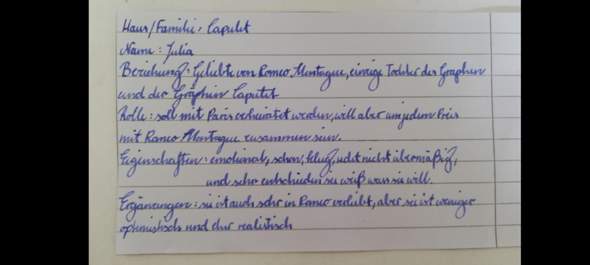 Haus/Familie: Capulet
Name: Julia
Beziehung: Geliebte von Romeo Montague, einzige Tochter des Graphen
und der Gräphin Capulet
Rolle: soll mit Paris verheiratet werden, will aber um jedem Preis
mit Romeo Montague zusammen sein.
Eigenschaften: emotional, schön, klug, redet nicht übermäßig,
und sehr entschieden sie weiß was sie will.
Ergänzungen: sie ist auch sehr in Romeo verliebt, aber sie ist weniger
optimistisch und eher realistisch